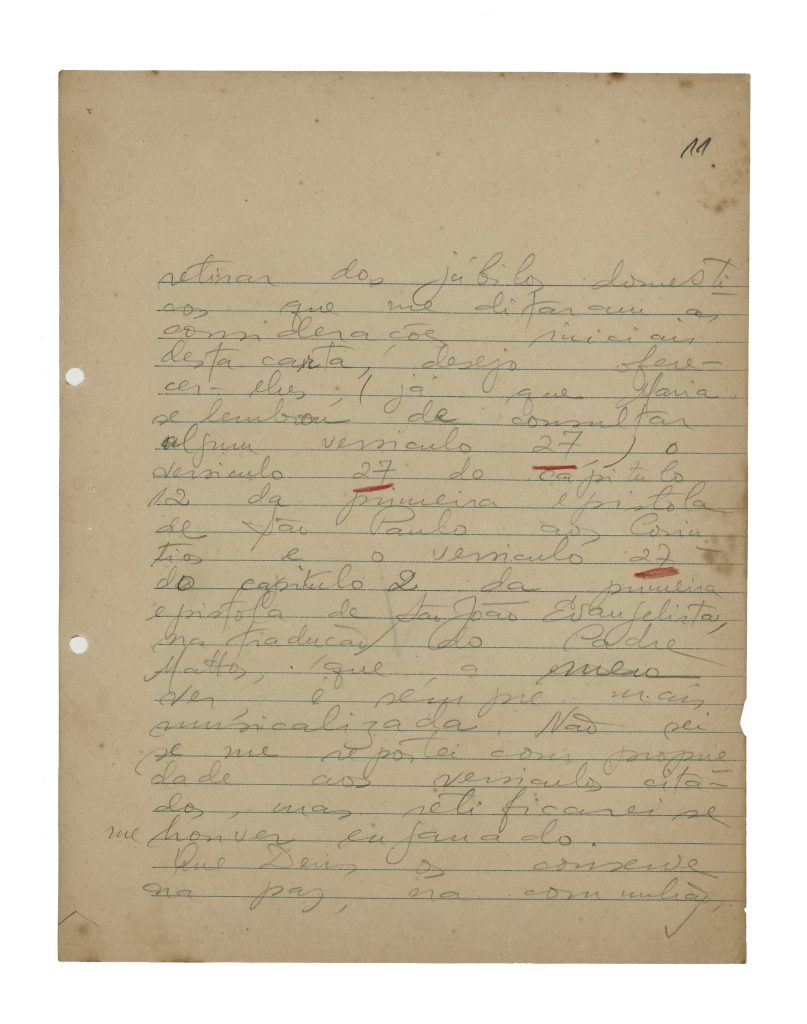 11
retirar dos júbilos domésti-
cos que me ditaram as
considerações iniciais
desta carta, desejo ofere-
cer-lhes, (já que Maria
se lembrou de consultar
algum versiculo 27,) o
versiculo 27 do capitulo
12 da primeira epistola
de São Paulo aos Corin-
tios e o versiculo 27
do capitulo 2 da primeira
epistola de São João Evangelista,
na tradução do Padre
Mattos, que a meu
ver, é sempre mais
musicalizada. Não sei
se me reportei com proprie
dade aos versiculos cita-
dos, mas retificarei se
me houver enganado.
Que Deus os conserve
na paz, na comunhão,